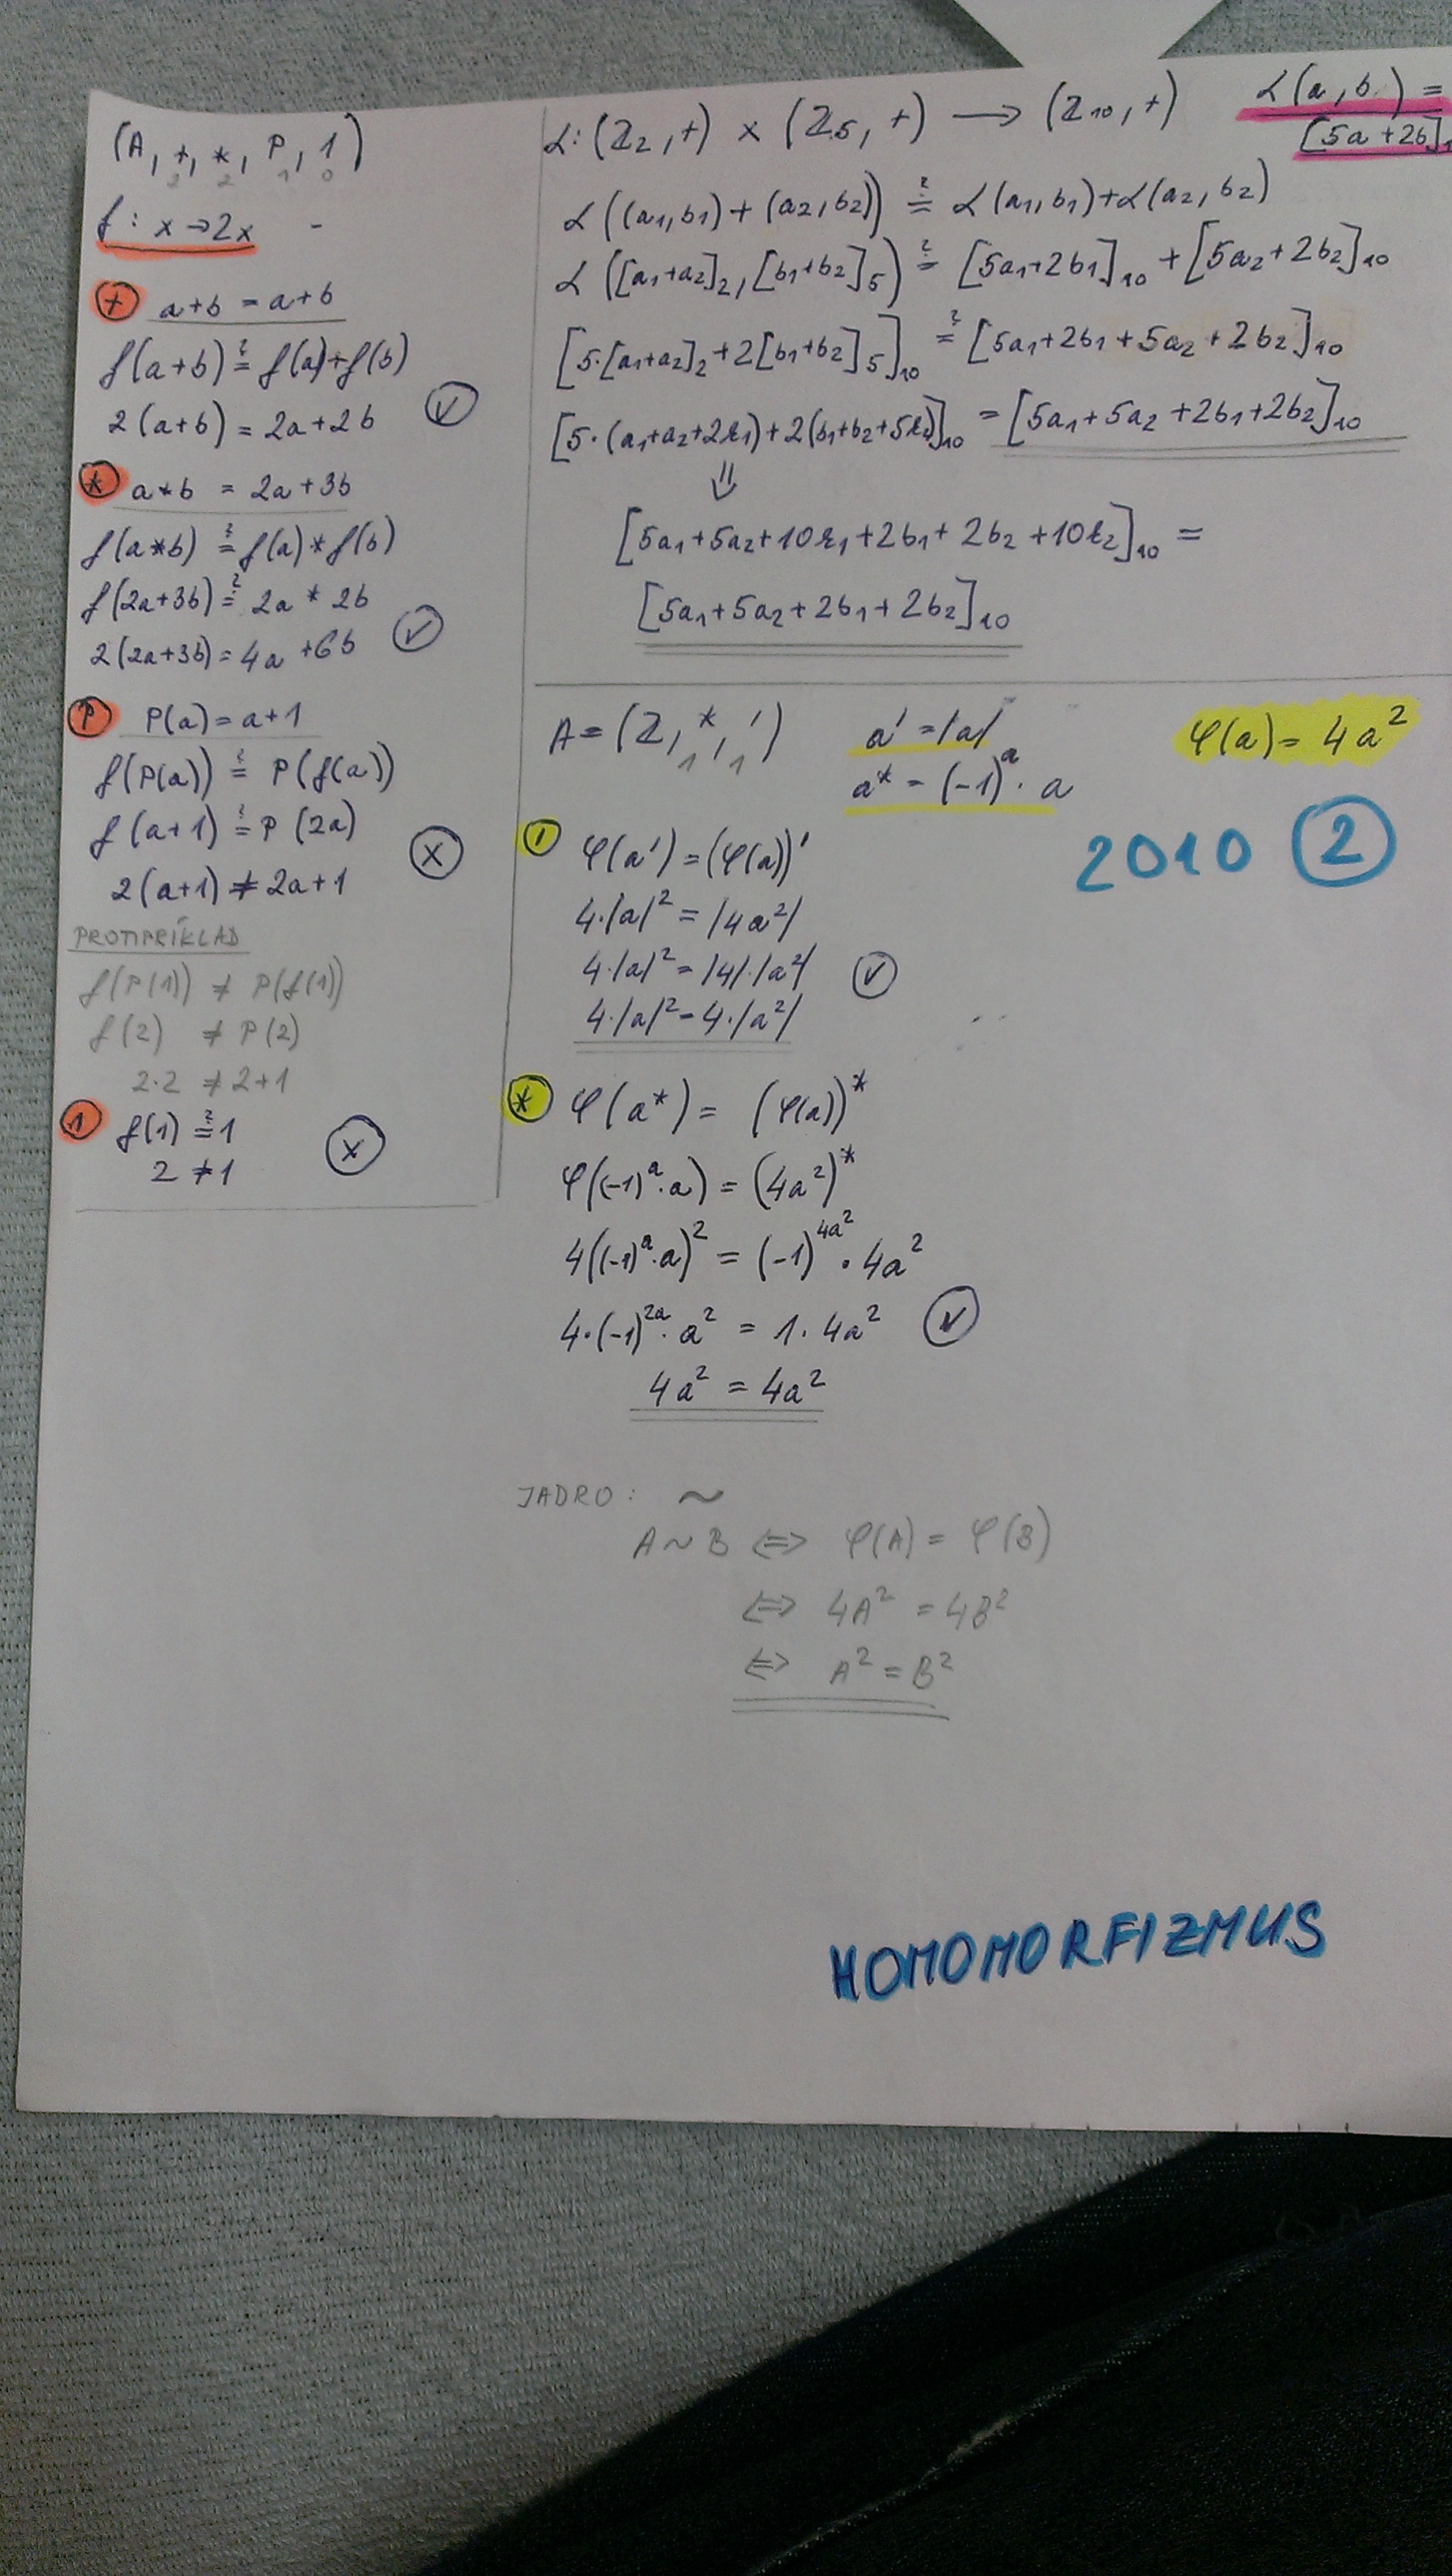 (A, +, *, P, 1)
2 2 1 0
f: x → 2x -
+ a+b = a+b
f(a+b) ≟ f(a)+f(b)
2(a+b) = 2a+2b ✓
* a*b = 2a+3b
f(a*b) ≟ f(a)*f(b)
f(2a+3b) ≟ 2a * 2b
2(2a+3b) = 4a +6b ✓
P P(a) = a+1
f(P(a)) ≟ P(f(a))
f(a+1) ≟ P(2a)
2(a+1) ≠ 2a+1 x
PROTIPRÍKLAD
f(P(1)) ≠ P(f(1))
f(2) ≠ P(2)
2·2 ≠ 2+1
1 f(1) ≟ 1
2 ≠ 1 x
α: (Z₂,+) × (Z₅,+) → (Z₁₀,+) α(a,b) =
[5a+2b]₁
α((a₁,b₁)+(a₂,b₂)) ≟ α(a₁,b₁)+α(a₂,b₂)
α([a₁+a₂]₂,[b₁+b₂]₅) ≟ [5a₁+2b₁]₁₀ + [5a₂+2b₂]₁₀
[5·[a₁+a₂]₂+2[b₁+b₂]₅]₁₀ ≟ [5a₁+2b₁+5a₂+2b₂]₁₀
[5·(a₁+a₂+2k₁)+2(b₁+b₂+5k₂)]₁₀ = [5a₁+5a₂+2b₁+2b₂]₁₀
⇓
[5a₁+5a₂+10k₁+2b₁+2b₂+10k₂]₁₀ =
[5a₁+5a₂+2b₁+2b₂]₁₀
A = (Z, *, ') a' = |a| φ(a) = 4a²
1 1
a* = (-1)ᵃ · a
2010 2
' φ(a') = (φ(a))'
4·|a|² = |4a²|
4·|a|² = |4|·|a²| ✓
4·|a|² = 4·|a²|
* φ(a*) = (φ(a))*
φ((-1)ᵃ·a) = (4a²)*
4((-1)ᵃ·a)² = (-1)^4a² · 4a²
4·(-1)²ᵃ·a² = 1·4a² ✓
4a² = 4a²
JADRO: ~
A~B ⇔ φ(A) = φ(B)
⇔ 4A² = 4B²
⇔ A² = B²
HOMOMORFIZMUS